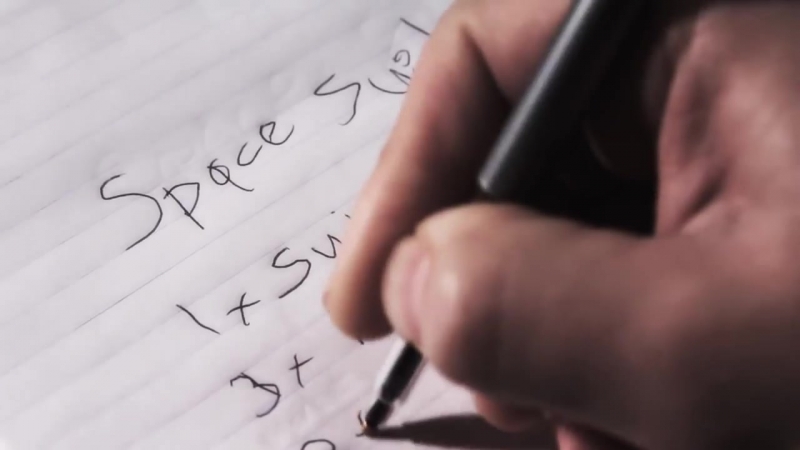 Space Sui
1 x Sui
3 x